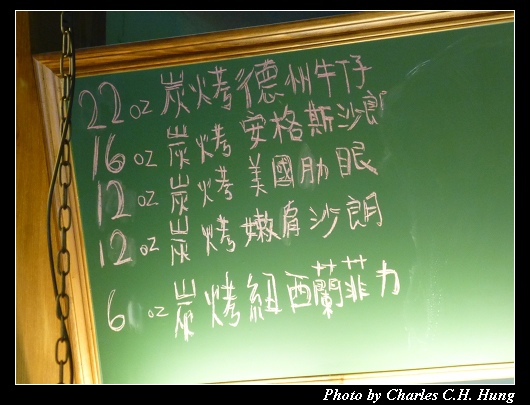 22 oz 炭烤德州牛仔
16 oz 炭烤安格斯沙朗
12 oz 炭烤美國肋眼
12 oz 炭烤嫩肩沙朗
6 oz 炭烤紐西蘭菲力
Photo by Charles C.H. Hung